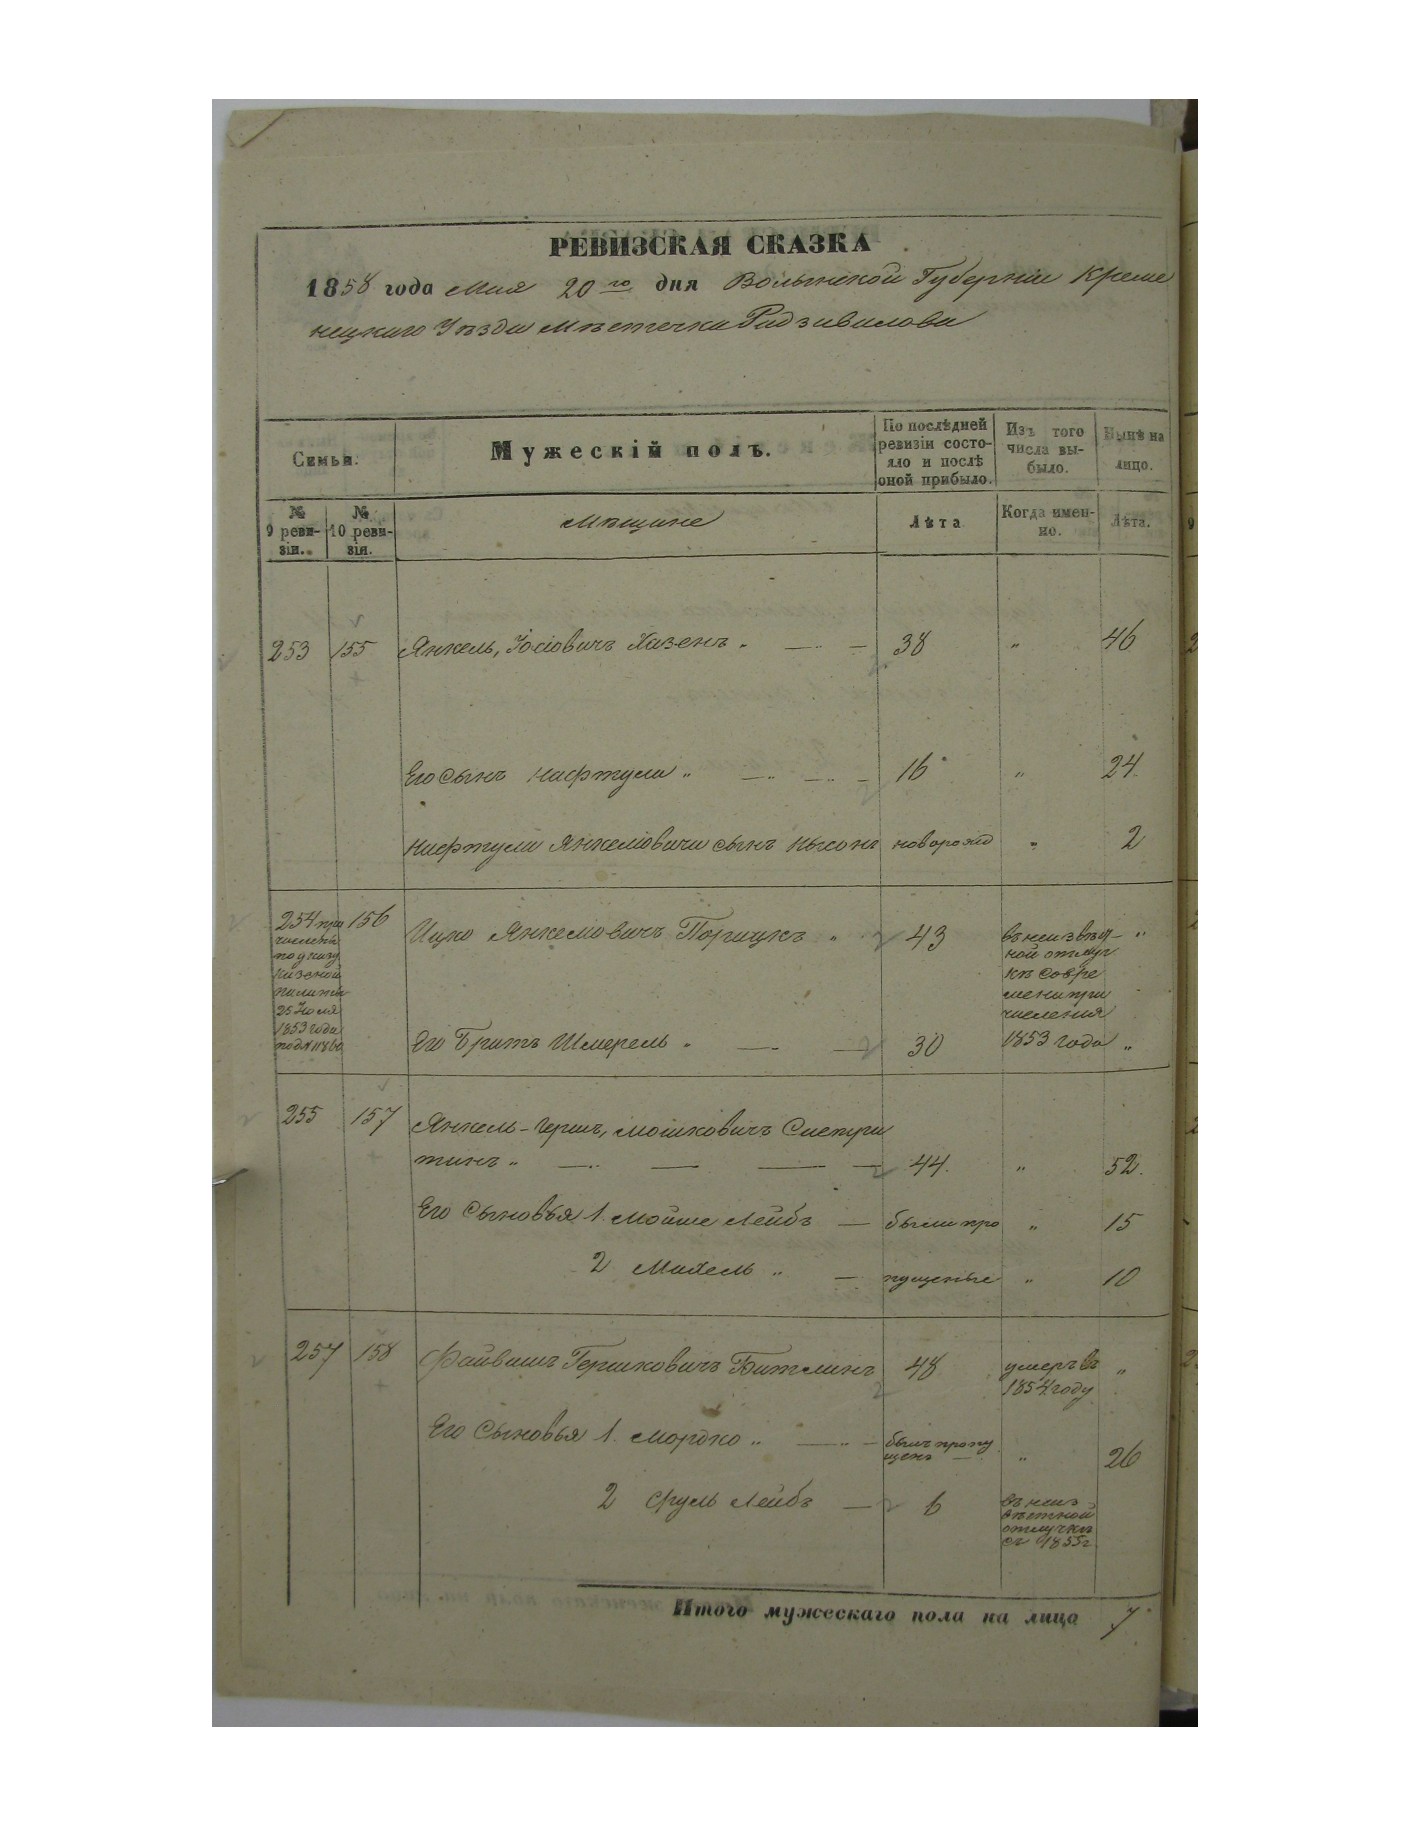 РЕВИЗСКАЯ СКАЗКА
1858 года Мая 20го дня Волынской Губерніи Креме
нецкаго Уѣзда Мѣстечка Радзивилова
Семьи.
Мужескій полъ.
По послѣдней ревизіи состо-
яло и послѣ
оной прибыло.
Изъ того
числа вы-
было.
Нынѣ на
лицо.
№
9 реви-
зіи.
№
10 реви-
зія.
Мѣщане
Лѣта
Когда имен-
но.
Лѣта.
253 155 Янкель, Іосіовичъ Хазенъ 38 " 46
Его Сынъ Нафтула " 16 " 24
Нафтули Янкеліовича сынъ Нысонъ новорожд " 2
254 при 156 Ицко Янкеліовичъ Порицкъ " 43 въ неизвѣст-
численъ
по указу
казенной
палаты
25 Іюля
1853 года
под № 11860
ной отлуч
кѣ со вре
мени при
численія
Его Братъ Шмерель 30 1853 года "
255 157 Янкель-Герш, Мошковичъ Сметри
тинъ " 44. " 52.
Его Сыновья 1. Мойше Лейбъ были про " 15
2 Михель " пущенные " 10
257 158 Файвишъ Гершковичъ Битлинъ 48 умеръ въ "
1854 году
Его Сыновья 1. Мордко " былъ пропу
щенъ " 26
2 Сруль Лейбъ 6 въ неиз
вѣстной
отлучкѣ
съ 1855 г
Итого мужескаго пола на лицо 7